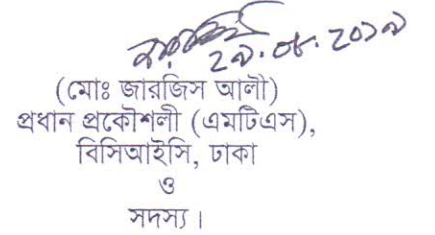 ২৯.০৮.২০১৯
(মোঃ জারজিস আলী)
প্রধান প্রকৌশলী (এমটিএস),
বিসিআইসি, ঢাকা
ও
সদস্য।